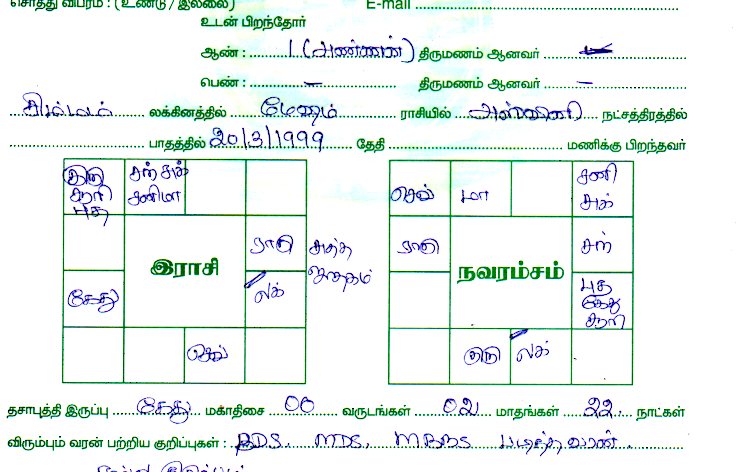 சொத்து விபரம் : (உண்டு / இல்லை) E-mail
உடன் பிறந்தோர்
ஆண் : 1 (அண்ணன்) திருமணம் ஆனவர்
பெண் : – திருமணம் ஆனவர் –
சிம்மம் லக்கினத்தில் மேஷம் ராசியில் அஸ்வினி நட்சத்திரத்தில்
பாதத்தில் 20/3/1999 தேதி மணிக்கு பிறந்தவர்
குரு சூரி புத
சுக் சனி மா
ராகு
லக்
செவ்
கேது
இராசி
சுத்த ஜாதகம்
செவ் மா சனி சுக்
ராகு சந்
புத கேது சூரி
குரு லக்
நவரம்சம்
தசாபுத்தி இருப்பு கேது மகாதிசை 06 வருடங்கள் 02 மாதங்கள் 22 நாட்கள்
விரும்பும் வரன் பற்றிய குறிப்புகள் : BDS, MDS, MBBS படித்த வரன்.